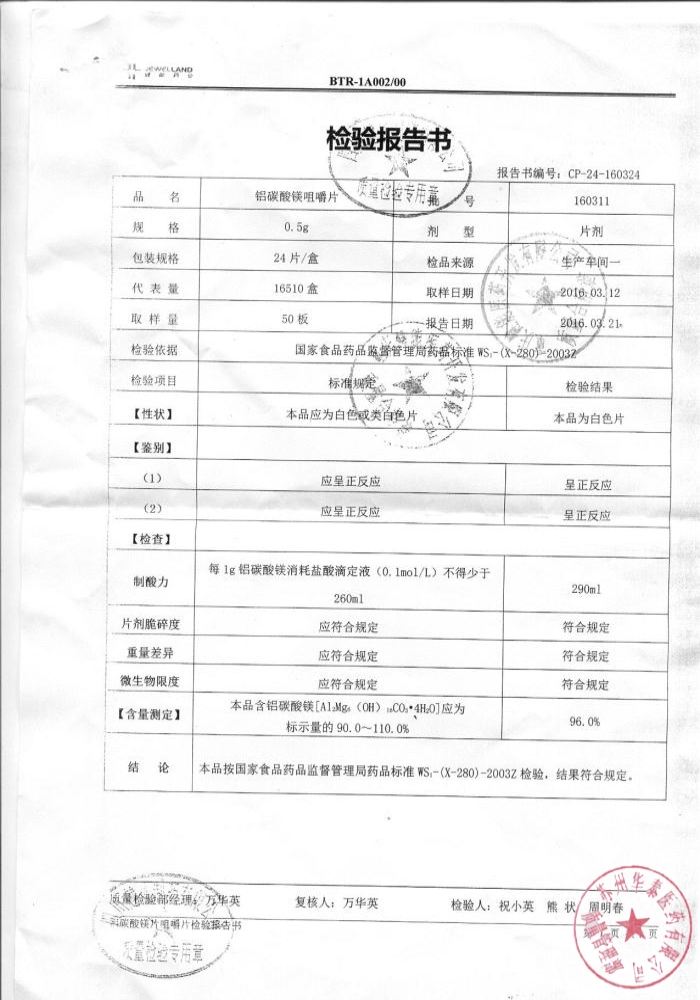 JEWELLAND
BTR-1A002/00
检验报告书
报告书编号：CP-24-160324
品 名 铝碳酸镁咀嚼片 批 号 160311
规 格 0.5g 剂 型 片剂
包装规格 24片/盒 检品来源 生产车间一
代表量 16510盒 取样日期 2016.03.12
取样量 50板 报告日期 2016.03.21
检验依据 国家食品药品监督管理局药品标准 WS₁-(X-280)-2003Z
检验项目 标准规定 检验结果
【性状】 本品应为白色或类白色片 本品为白色片
【鉴别】
（1） 应呈正反应 呈正反应
（2） 应呈正反应 呈正反应
【检查】
制酸力 每1g铝碳酸镁消耗盐酸滴定液（0.1mol/L）不得少于 290ml
260ml
片剂脆碎度 应符合规定 符合规定
重量差异 应符合规定 符合规定
微生物限度 应符合规定 符合规定
【含量测定】 本品含铝碳酸镁[Al₂Mg₆（OH）₁₆CO₃•4H₂O]应为 96.0%
标示量的90.0～110.0%
结 论 本品按国家食品药品监督管理局药品标准WS₁-(X-280)-2003Z检验，结果符合规定。
质量检验部经理：万华英 复核人：万华英 检验人：祝小英 熊 状 周明春
铝碳酸镁片咀嚼片检验报告书
质量检验专用章
质量检验专用章
苏州华泰医药有限公司